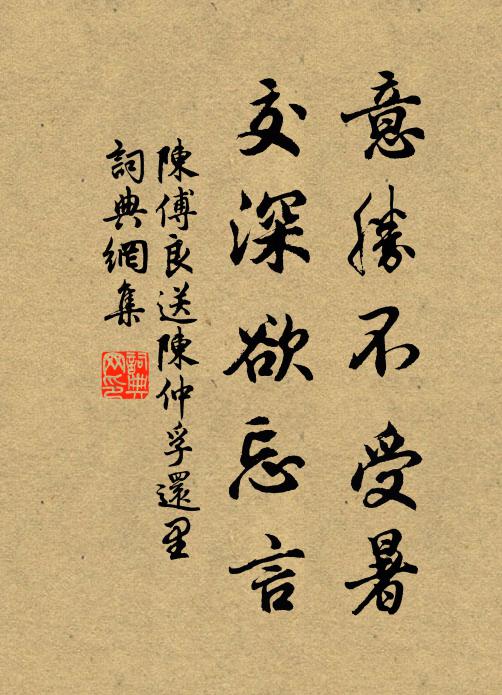 意勝不受暑
交深欲忘言
陳傅良送陳仲孚還里
詞典網集
詞典网印